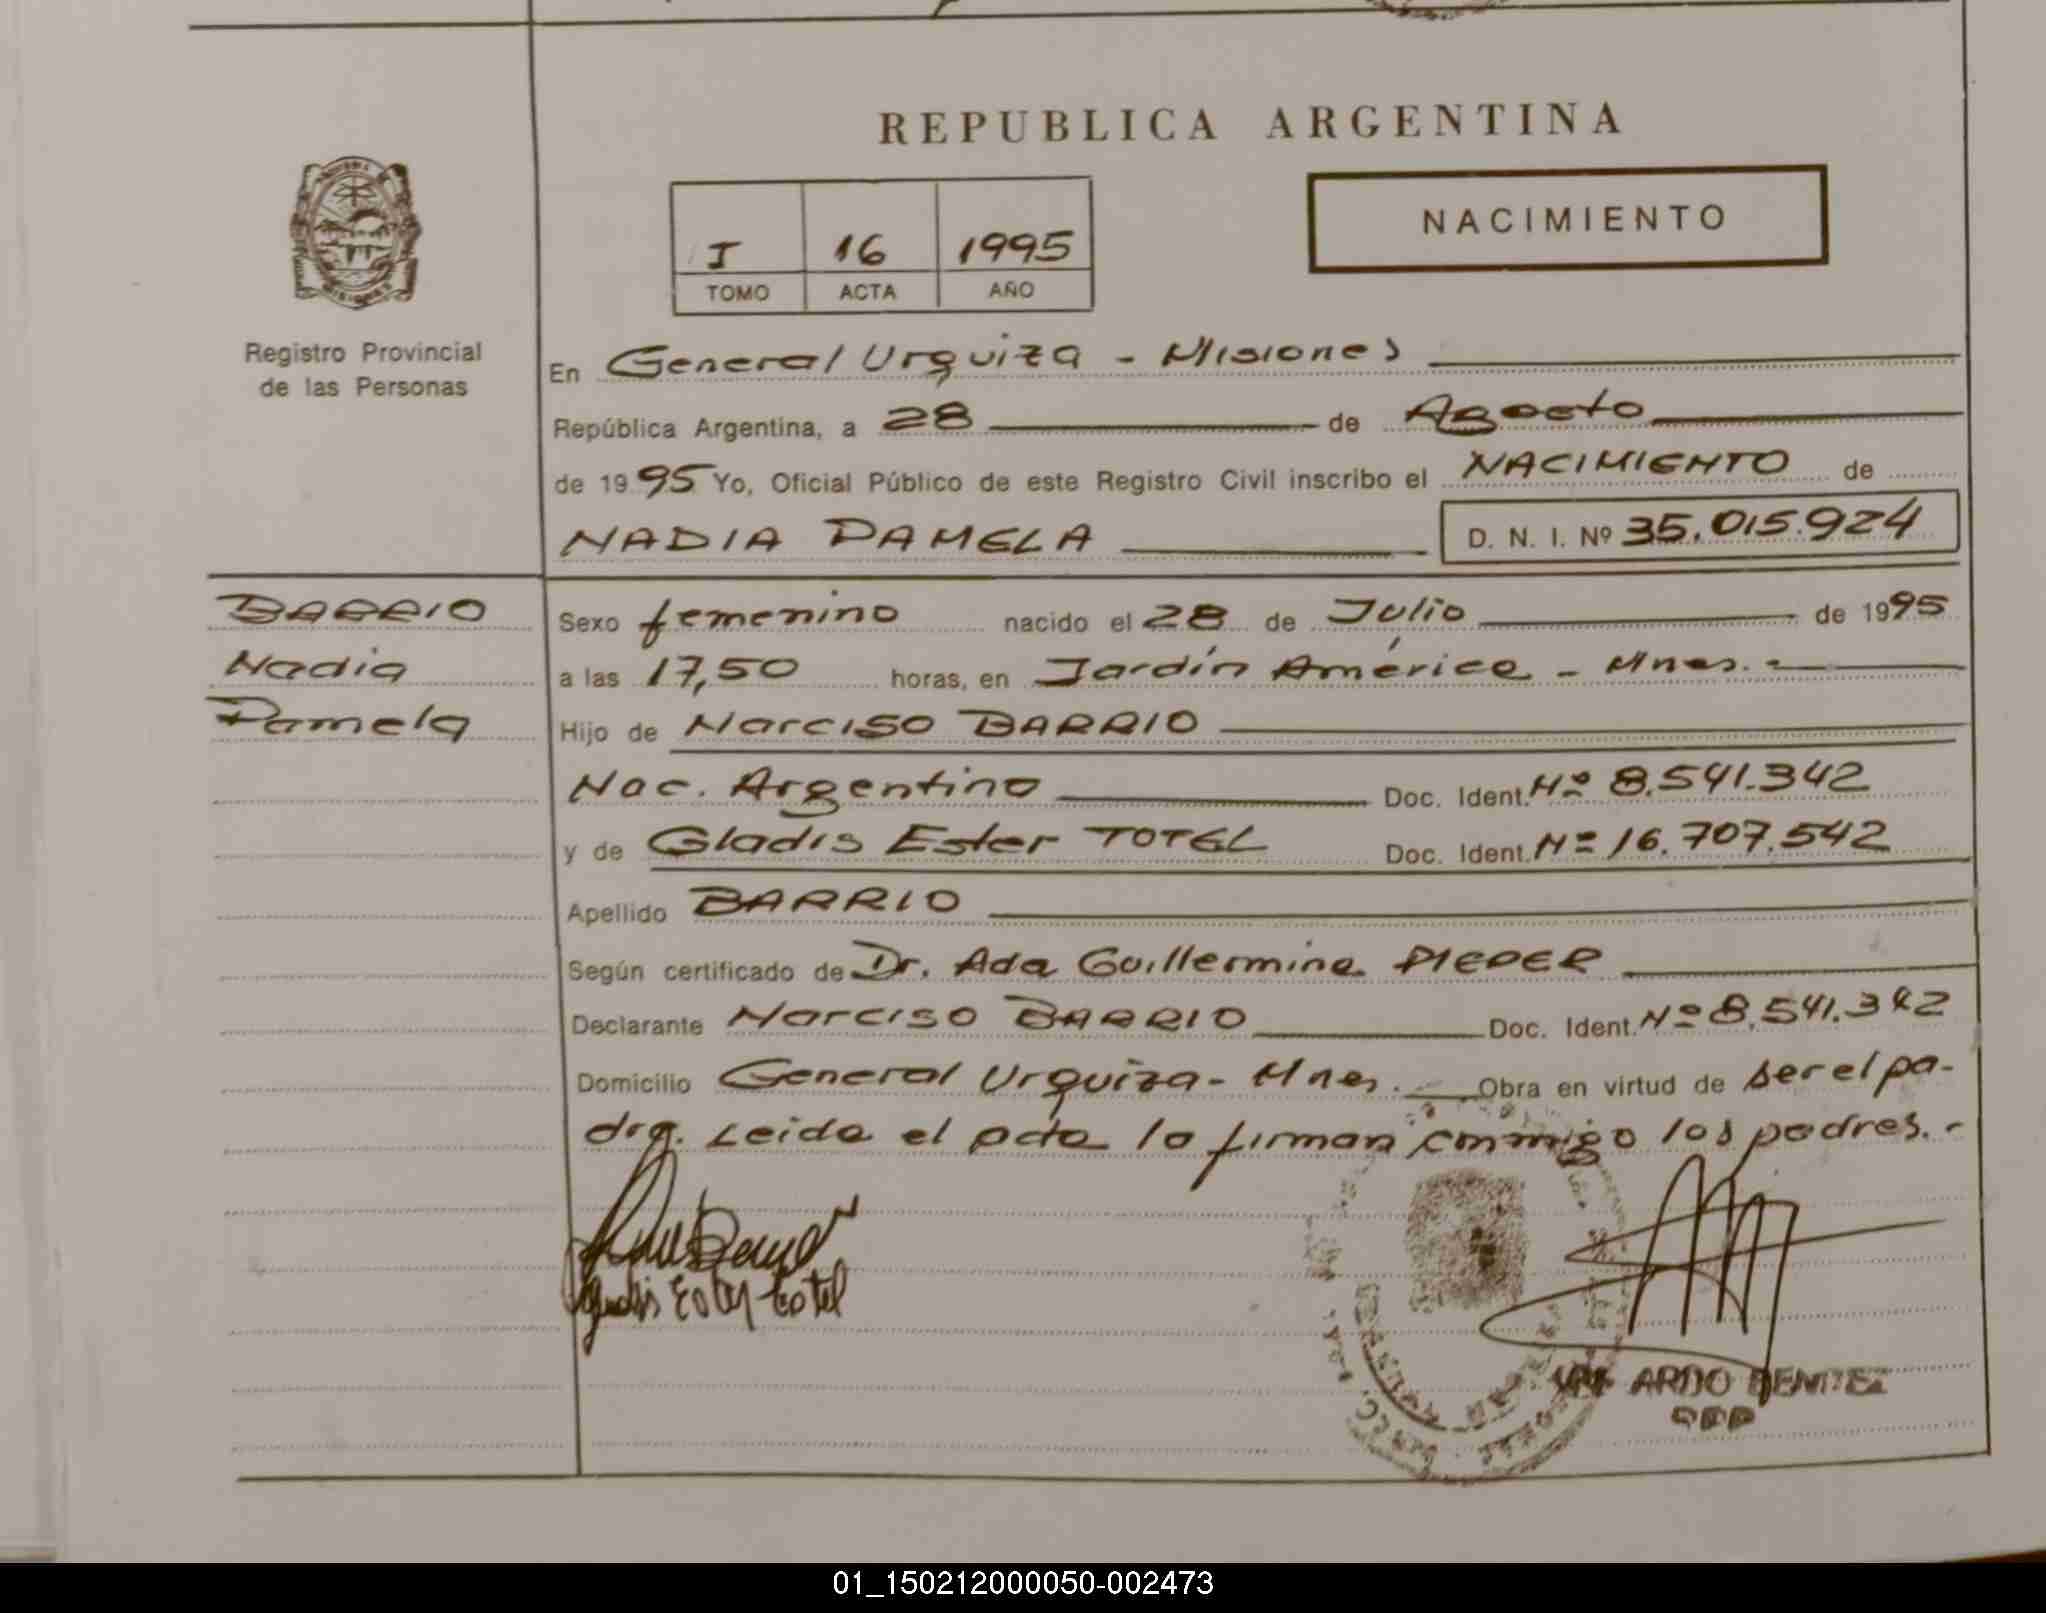 REPUBLICA ARGENTINA
NACIMIENTO
I 16 1995
TOMO ACTA AÑO
Registro Provincial
de las Personas
En General Urquiza - Misiones
República Argentina, a 28 de Agosto
de 1995 Yo, Oficial Público de este Registro Civil inscribo el NACIMIENTO de
NADIA PAMELA D. N. I. Nº 35.015.924
BARRIO
Nadia
Pamela
Sexo femenino nacido el 28 de Julio de 1995
a las 17,50 horas, en Jardín América - Mnes.-
Hijo de Narciso BARRIO
Nac. Argentino Doc. Ident. Nº 8.541.342
y de Gladis Ester TOTEL Doc. Ident. Nº 16.707.542
Apellido BARRIO
Según certificado de Dr. Ada Guillermina PIEPER
Declarante Narciso BARRIO Doc. Ident. Nº 8.541.342
Domicilio General Urquiza- Mnes. Obra en virtud de ser el pa-
dre. Leida el acta la firman conmigo los padres.-
Gladis Ester totel
ARDO BENITEZ
01_150212000050-002473